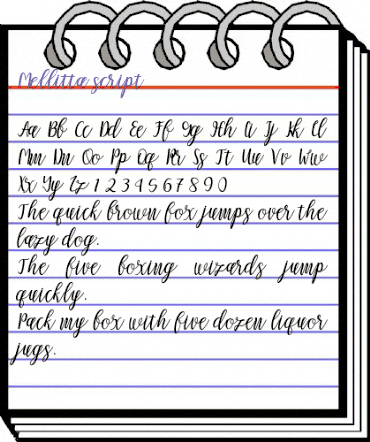 Mellitta script
Aa Bb Cc Dd Ee Ff Gg Hh Ii Jj Kk Ll
Mm Nn Oo Pp Qq Rr Ss Tt Uu Vv Ww
Xx Yy Zz 1 2 3 4 5 6 7 8 9 0
The quick brown fox jumps over the
lazy dog.
The five boxing wizards jump
quickly.
Pack my box with five dozen liquor
jugs.